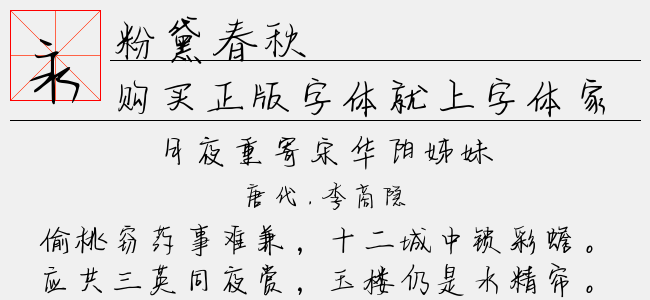 永
粉黛春秋
购买正版字体就上字体家
月夜重寄宋华阳姊妹
唐代.李商隐
偷桃窃药事难兼，十二城中锁彩蟾。
应共三英同夜赏，玉楼仍是水精帘。